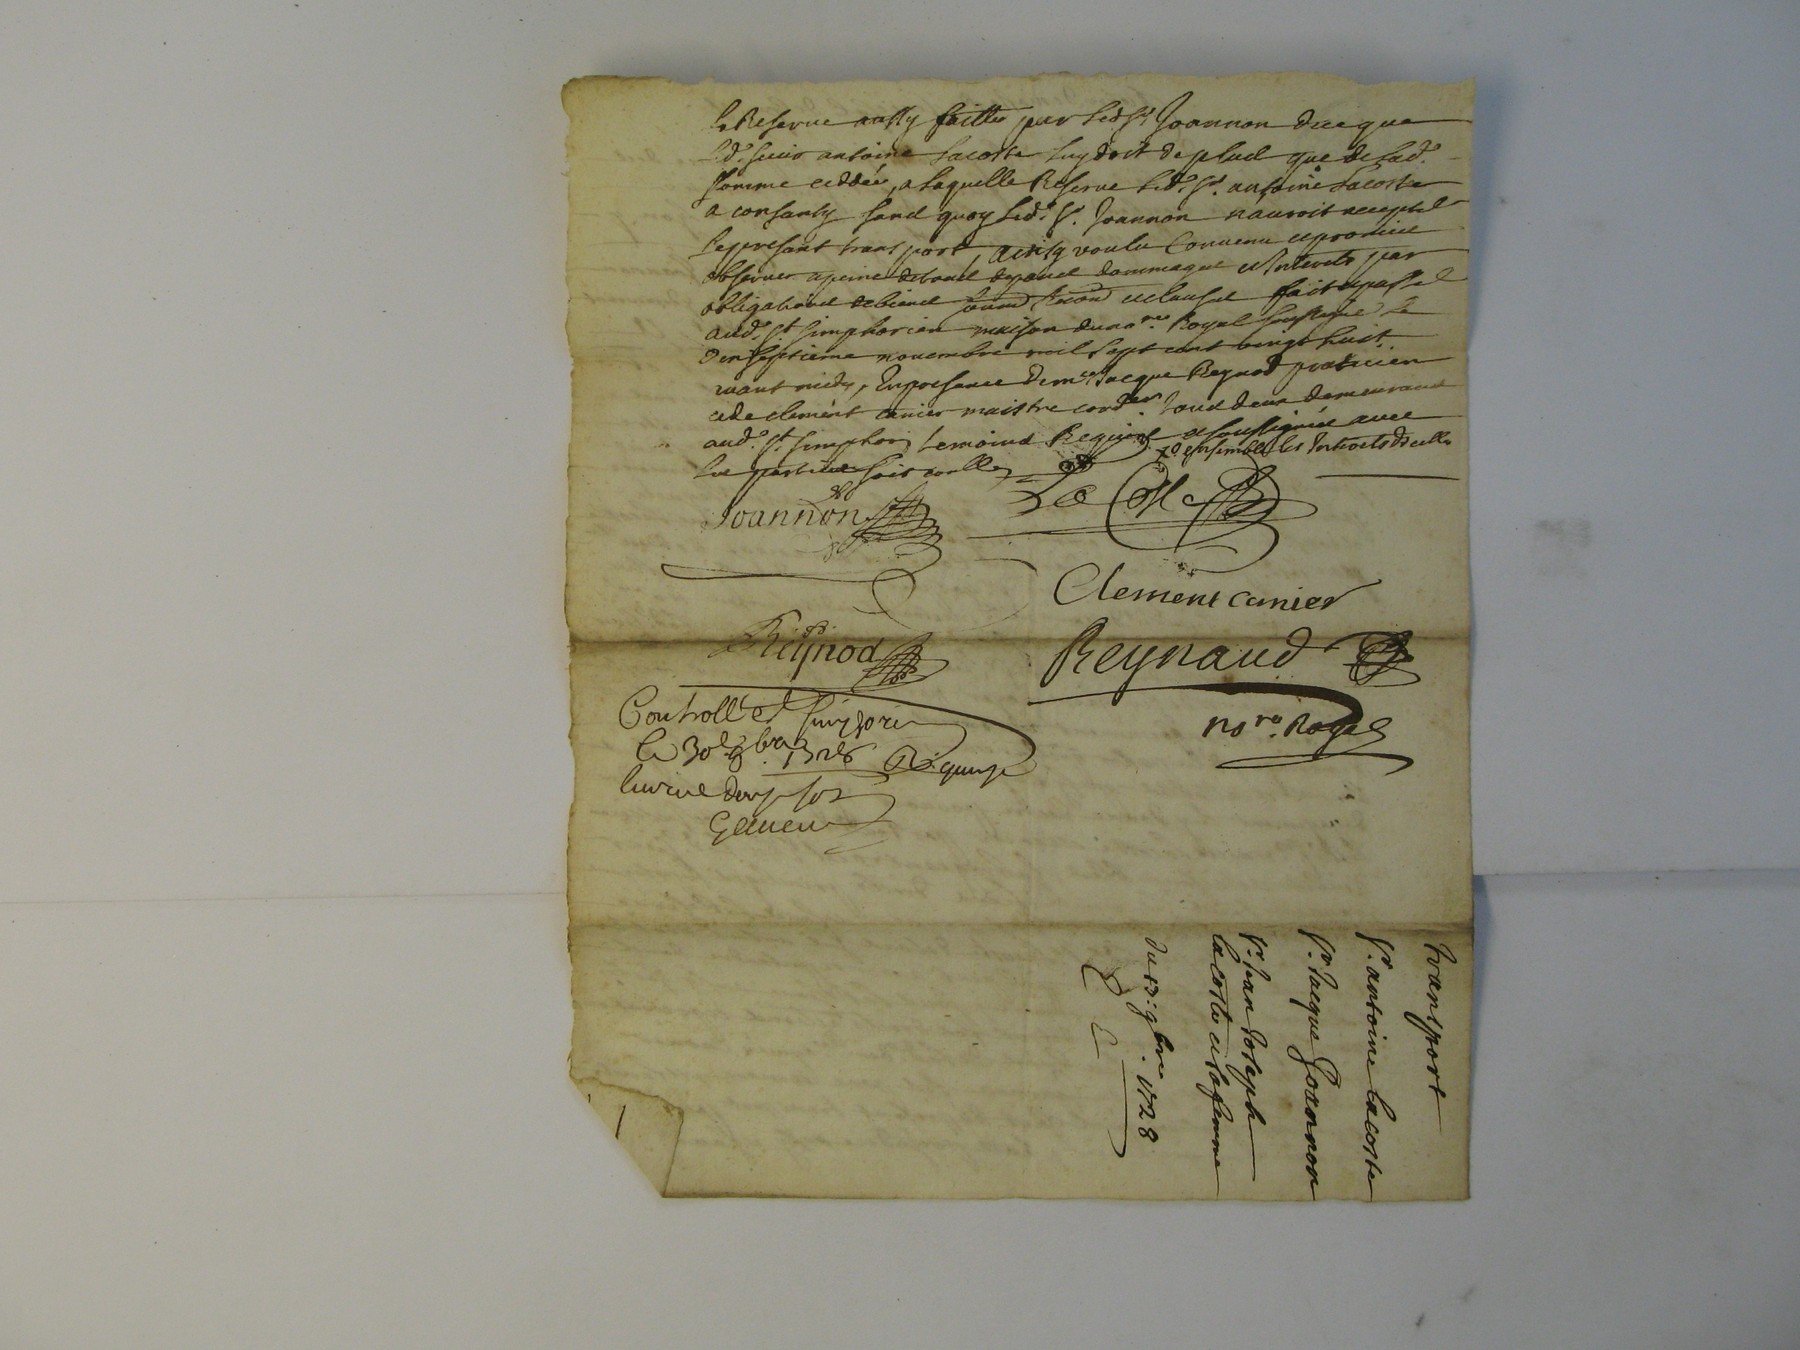 la Reserve aussy faitte par led. Sr. Joannon de ce que
led. sieur antoine Lacoste luy doit de plus que de lad.
somme ceddée, a laquelle Reserve led. Sr. antoine Lacoste
a consanty sans quoy led. Sr. Joannon nauroit accepté
le present transport, ainsy voulu convenu et promis
observer a peine de tous depans dommages et Interets par
obligations de biens et clauses fait et passé
aud. St. simphorien maison du nore. Royal soussigné le
dix septieme novembre mil sept cent vingt huit
avant midy, En presance de me. Jacque Reynod praticien
et de clement canier maistre cordier. tous deux demeurants
aud. St. simphorien temoins Requis et soussignés avec
les parties ensemble les Interets dicelle
Joannon La Coste
Clement canier
Reynod Reynaud
nore. Royal
Controllé a St simphorien
le 30e 9bre 1728 Reçu
livres dix sols
Transport
Sr. antoine Lacoste
Sr. Jacque Joannon
Sr. Jean Joseph
lacoste et sa femme
Du 17: 9bre. 1728